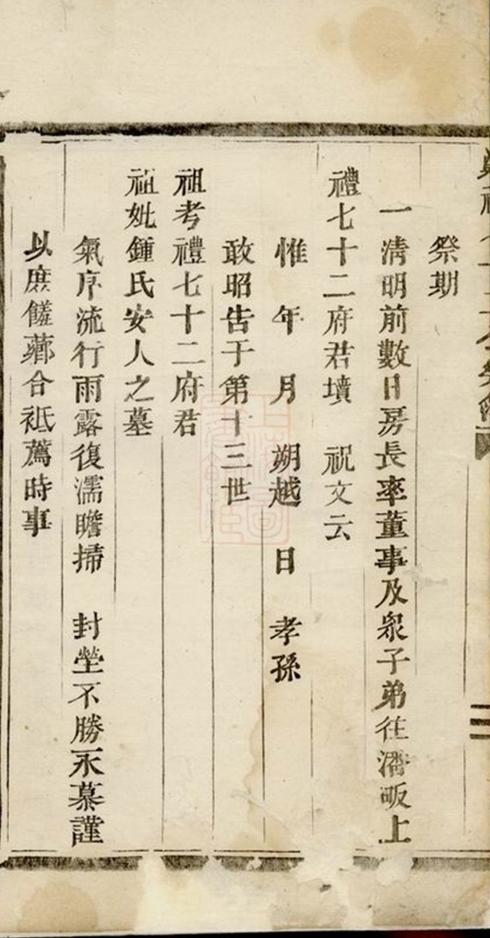 祭期
一清明前數日房長率董事及衆子弟往潘畈上
禮七十二府君墳　祝文云
惟　年　月　朔越　日　孝孫
敢昭告于第十三世
祖考禮七十二府君
祖妣鍾氏安人之墓
氣序流行雨露復濡瞻掃　封塋不勝永慕謹
以庶饈薌合祗薦時事